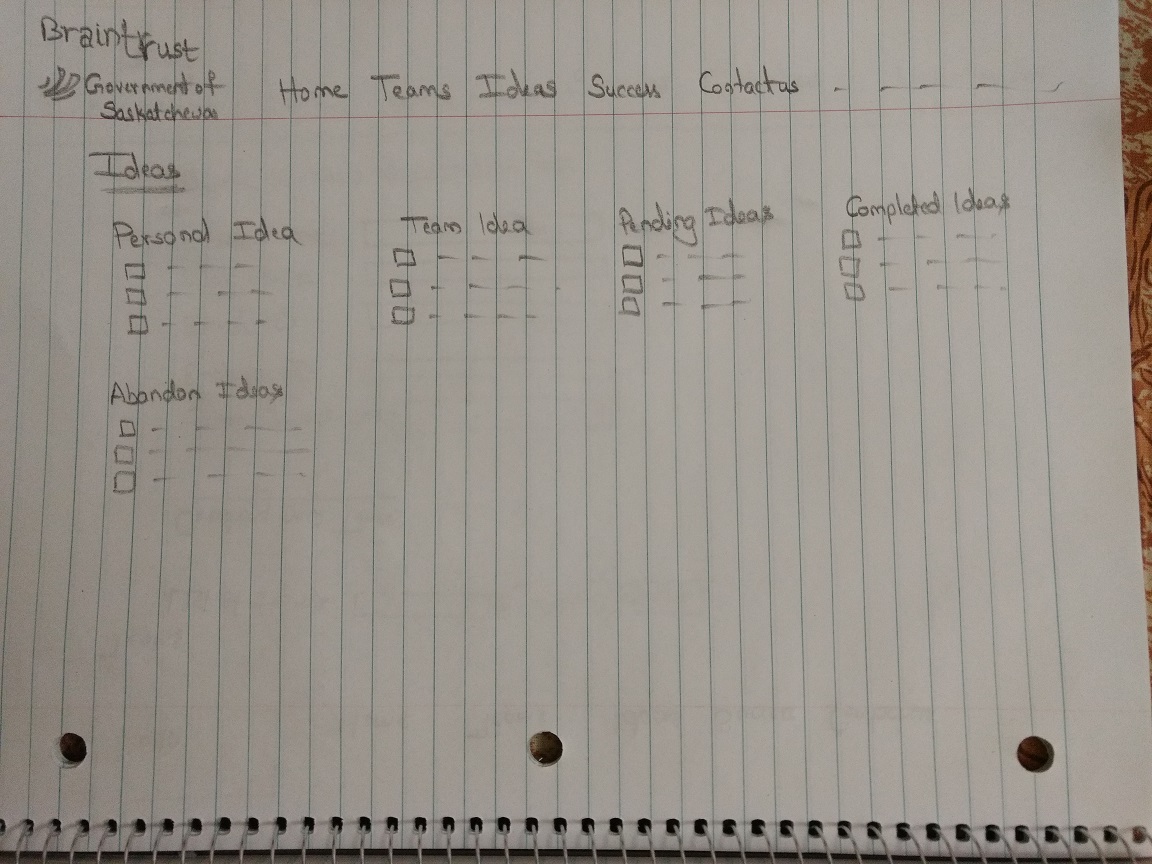 Braintrust
Government of
Saskatchewan
Home Teams Ideas Success Contactus
Ideas
Personal Idea
Team Idea
Pending Ideas
Completed Ideas
Abandon Ideas